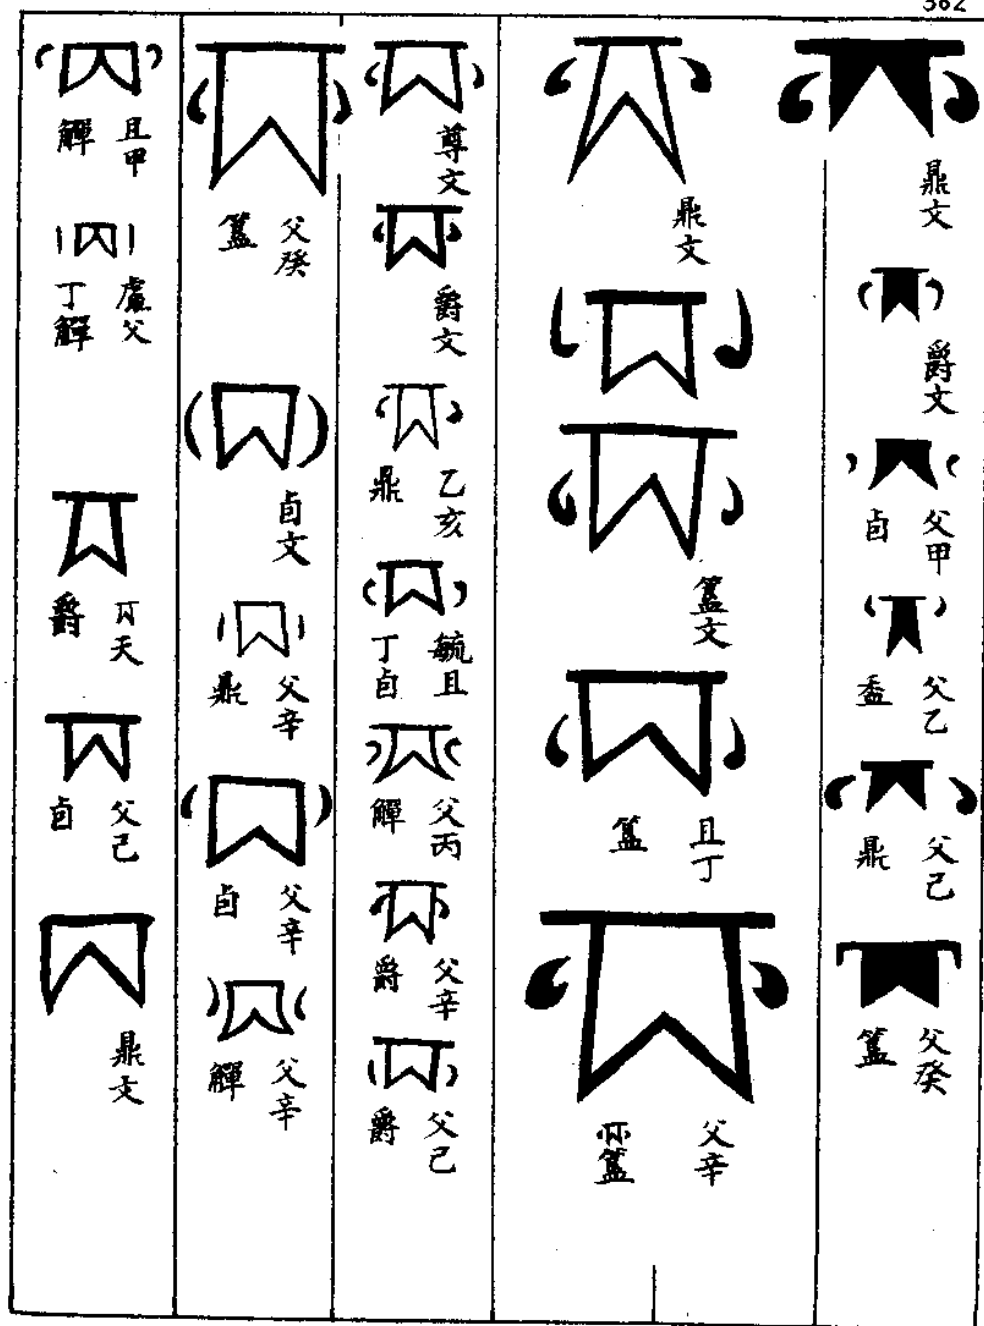 鼎文
爵文
父甲
卣
父乙
盉
父己
鼎
父癸
簋
鼎文
簋文
且丁
簋
父辛
簋
尊文
爵文
乙亥
鼎
毓且
丁卣
父丙
觶
父辛
爵
父己
爵
父癸
簋
卣文
父辛
鼎
父辛
卣
父辛
觶
且甲
觶
父
丁觶
天
爵
父己
卣
鼎文